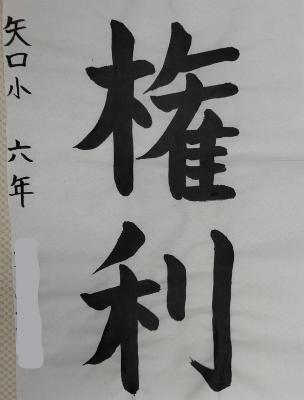 権利
矢口小 六年